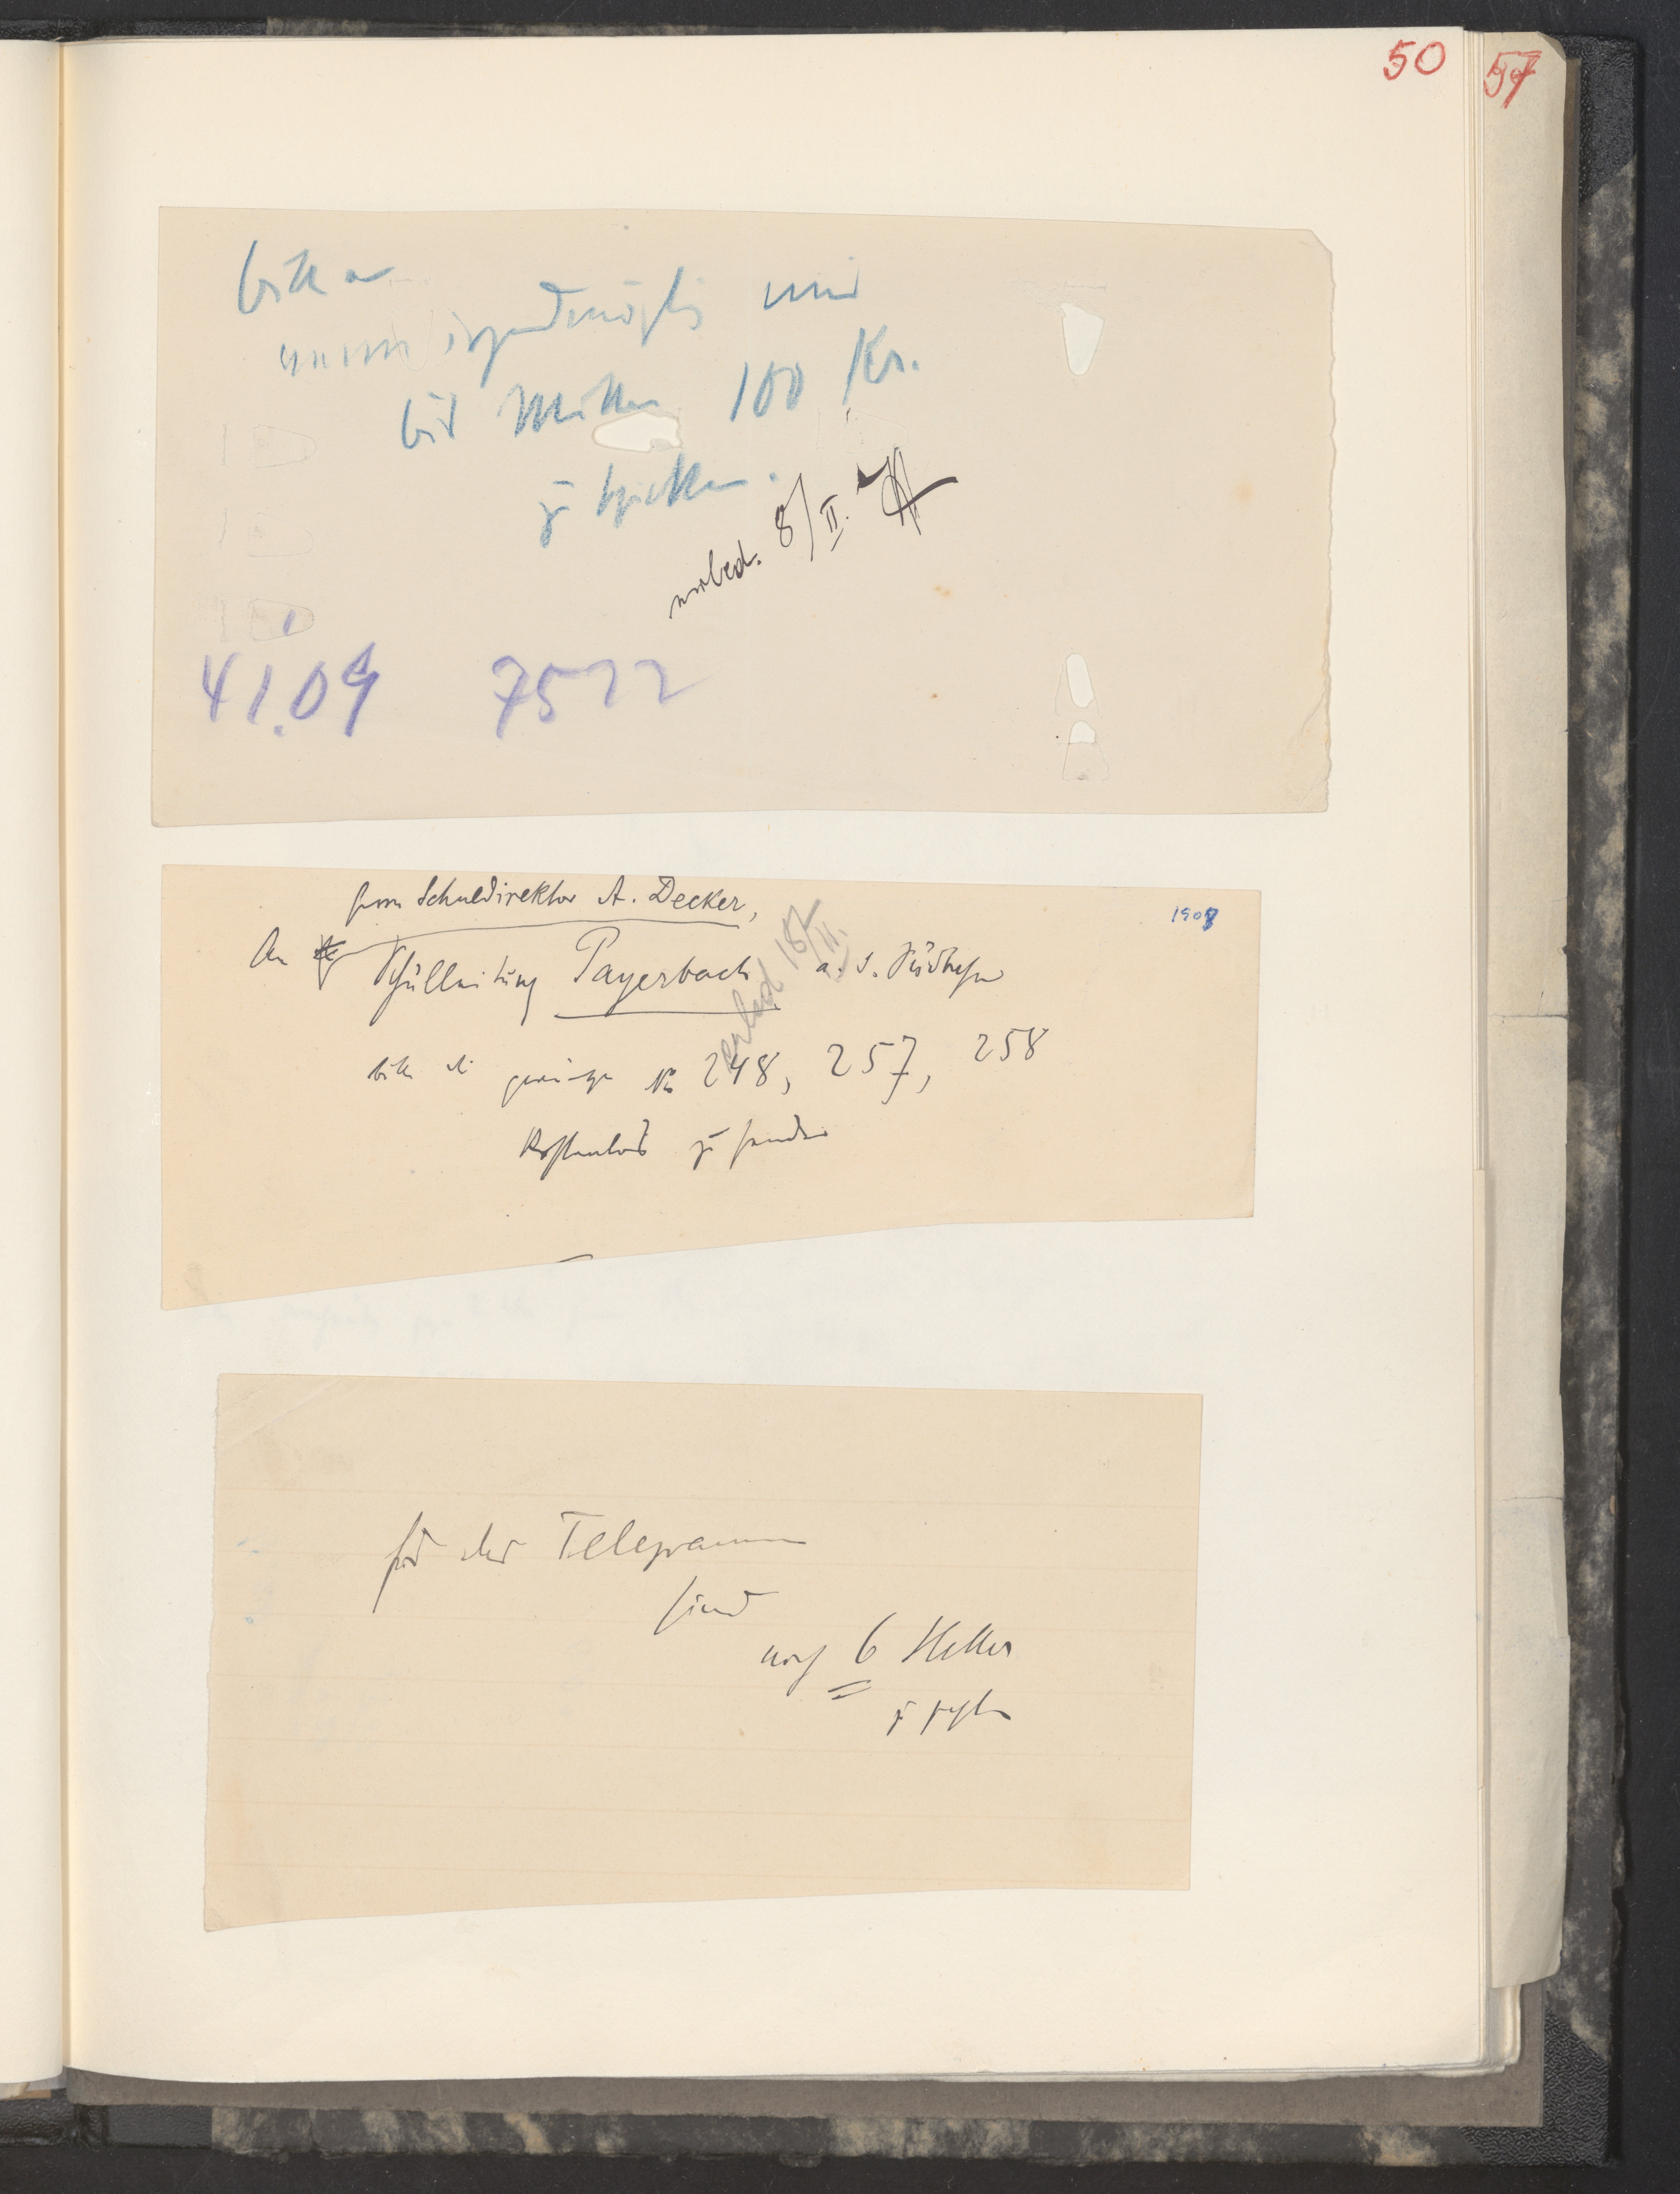 50 57
bitte
wenn irgendmöglich mir
bis Mittag 100 Kr.
zu schicken.
erled. 8/II.
41.09 7522
Herrn Schuldirektor A. Decker,
1908
An Schulleitung Payerbach a. d. Südbahn
erled 18/II.
bitte die No 248, 257, 258
kostenlos zu senden
für das Telegramm
sind
noch 6 Heller
zu zahlen